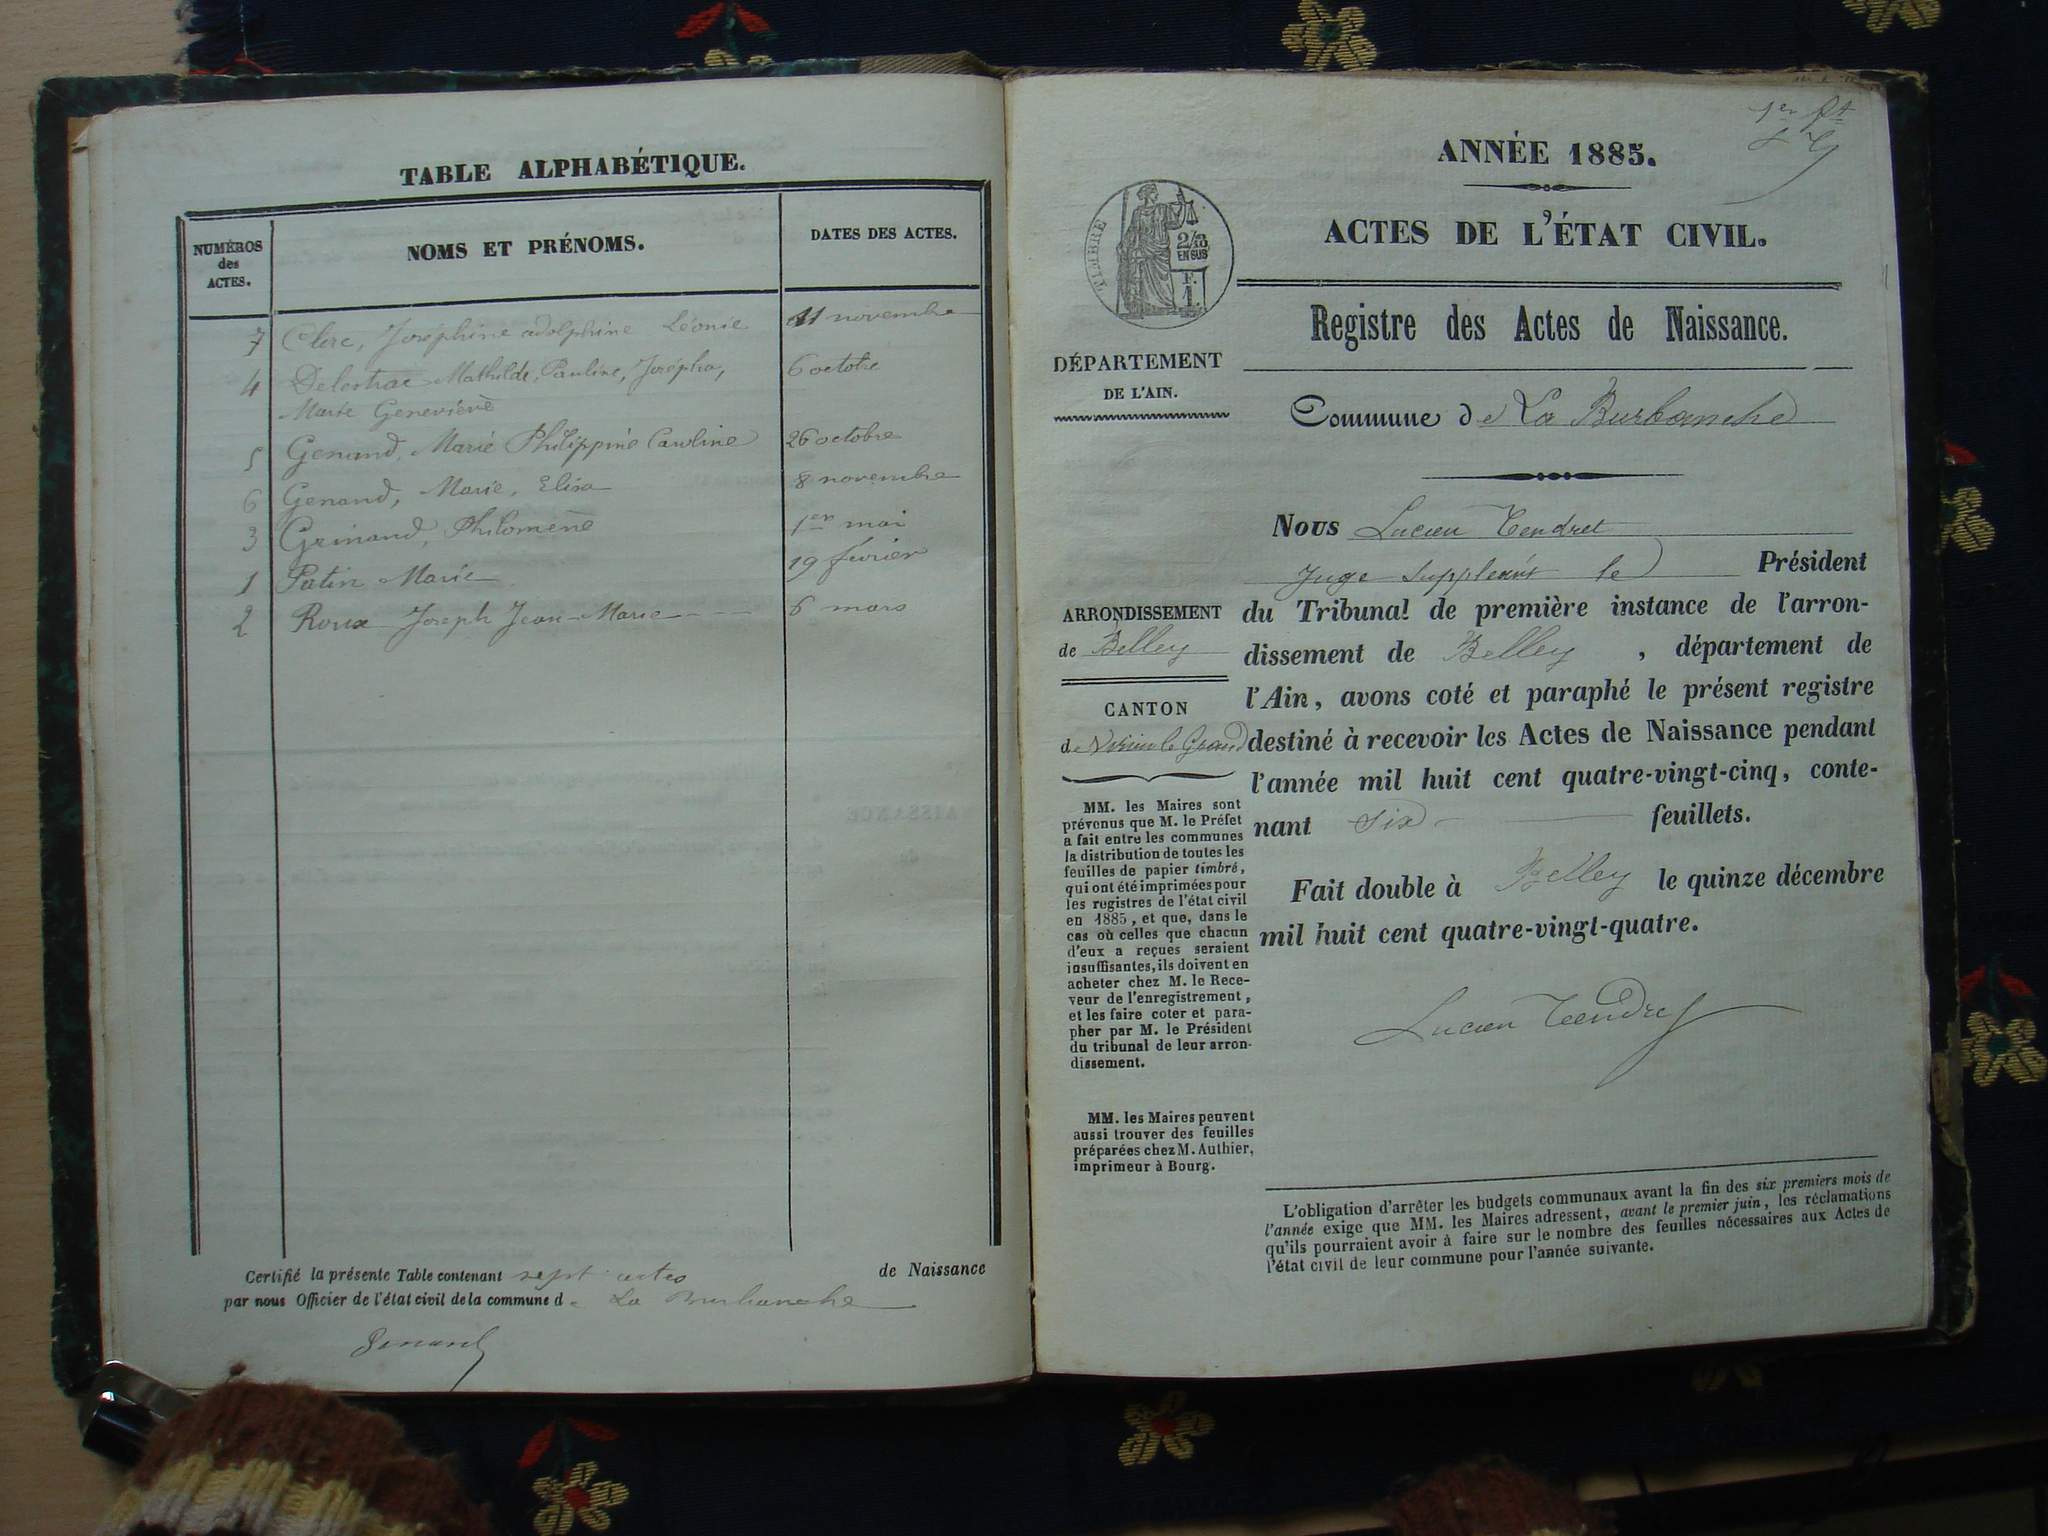 TABLE ALPHABÉTIQUE.
NUMÉROS
des
ACTES.
NOMS ET PRÉNOMS.
DATES DES ACTES.
7 Clerc, Joséphine adolphine Léonie 11 novembre
4 Delestrac Mathilde, Pauline, Josépha, 6 octobre
Marie Geneviève
5 Genand, Marie Philippine Caroline 26 octobre
6 Genand, Marie, Elisa 8 novembre
3 Grinand, Philomène 1er mai
1 Patin Marie 19 février
2 Roux Joseph Jean-Marie 6 mars
Certifié la présente Table contenant sept actes de Naissance
par nous Officier de l'état civil de la commune de La Burbanche
Genand
1er
ANNÉE 1885.
ACTES DE L'ÉTAT CIVIL.
TIMBRE
2/10
EN SUS
F.
1.
Registre des Actes de Naissance.
DÉPARTEMENT
DE L'AIN.
Commune de La Burbanche
Nous Lucien Tendret
Juge Suppléant le Président
du Tribunal de première instance de l'arron-
dissement de Belley, département de
l'Ain, avons coté et paraphé le présent registre
destiné à recevoir les Actes de Naissance pendant
l'année mil huit cent quatre-vingt-cinq, conte-
nant six feuillets.
Fait double à Belley le quinze décembre
mil huit cent quatre-vingt-quatre.
Lucien Tendret
ARRONDISSEMENT
de Belley
CANTON
de Virieu le Grand
MM. les Maires sont
prévenus que M. le Préfet
a fait entre les communes
la distribution de toutes les
feuilles de papier timbré,
qui ont été imprimées pour
les registres de l'état civil
en 1885, et que, dans le
cas où celles que chacun
d'eux a reçues seraient
insuffisantes, ils doivent en
acheter chez M. le Rece-
veur de l'enregistrement,
et les faire coter et para-
pher par M. le Président
du tribunal de leur arron-
dissement.
MM. les Maires peuvent
aussi trouver des feuilles
préparées chez M. Authier,
imprimeur à Bourg.
L'obligation d'arrêter les budgets communaux avant la fin des six premiers mois de
l'année exige que MM. les Maires adressent, avant le premier juin, les réclamations
qu'ils pourraient avoir à faire sur le nombre des feuilles nécessaires aux Actes de
l'état civil de leur commune pour l'année suivante.